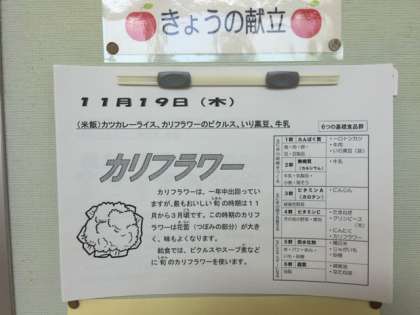 きょうの献立
11月19日(木)
(米飯)カツカレーライス、カリフラワーのピクルス、いり黒豆、牛乳
カリフラワー
カリフラワーは、一年中出回ってい
ますが、最もおいしい旬の時期は11
月から3月頃です。この時期のカリフ
ラワーは花蕾(つぼみの部分)が大き
く、味もよくなります。
給食では、ピクルスやスープ煮など
に旬のカリフラワーを使います。
6つの基礎食品群
1群 たんぱく質
・牛肉
・いり黒豆(豆)
2群 無機質
(カルシウム)
・牛乳
3群 ビタミンA
(カロテン)
・にんじん
4群 ビタミンC
・たまねぎ
・グリンピース
・にんにく
・カリフラワー
5群 炭水化物
・じゃがいも
・砂糖
6群 脂質